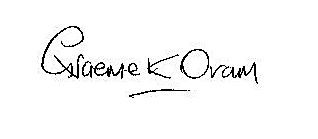 Graeme K Oram